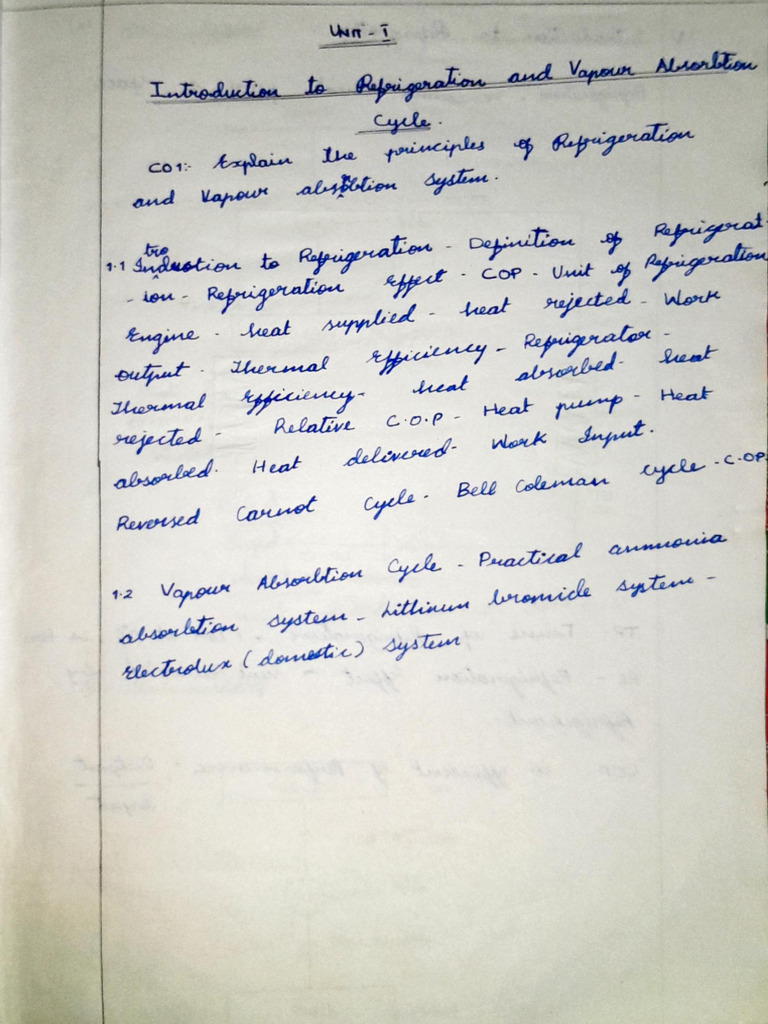 UNIT - I
Introduction to Refrigeration and Vapour Absorbtion
Cycle.
CO1:- Explain the principles of Refrigeration
and Vapour absorbtion system.
1.1 Introduction to Refrigeration - Definition of Refrigerat-
- ion - Refrigeration effect - COP - Unit of Refrigeration
Engine - heat supplied - heat rejected - Work
output. Thermal efficiency - Refrigerator -
Thermal efficiency - heat absorbed - heat
rejected - Relative C.O.P - Heat pump - Heat
absorbed. Heat delivered - Work Input.
Reversed Carnot Cycle - Bell Coleman cycle - C.OP.
1.2 Vapour Absorbtion Cycle - Practical ammonia
absorbtion system - Lithium bromide system -
Electrolux (domestic) system